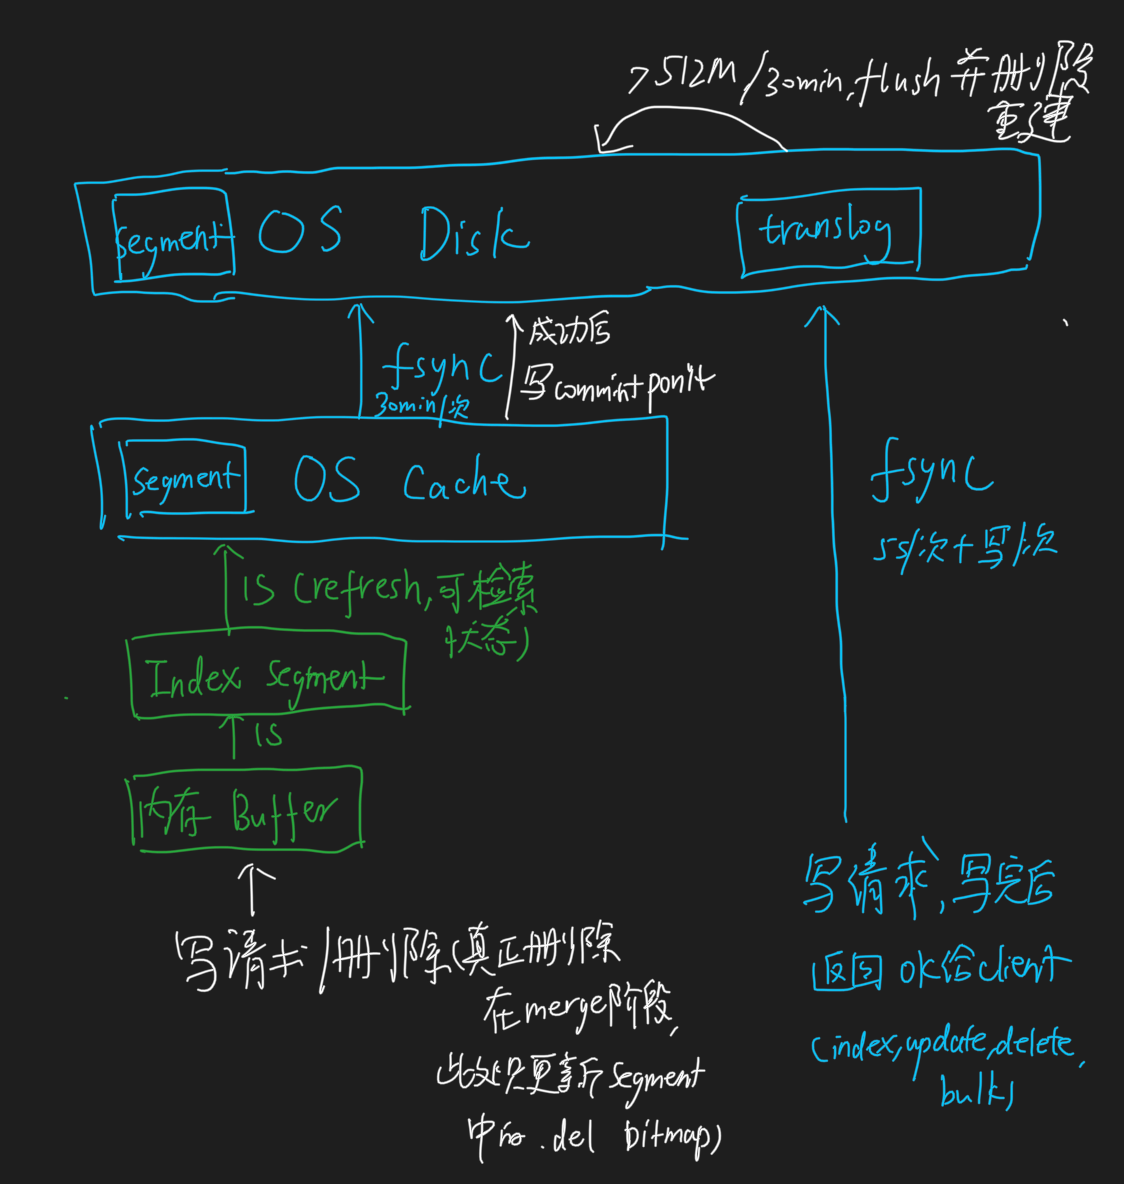 >512M/30min,flush 并删除
重建
segment OS Disk translog
成功后
写commint ponit
fsync
30min/次
segment OS Cache
fsync
5s/次+写/次
1S (refresh,可检索
状态)
Index segment
1S
内存 Buffer
写请求,写完后
返回 ok给client
(index,update,delete,
bulk)
写请书/删除(真正删除
在merge阶段,
此处只更新segment
中的.del bitmap)